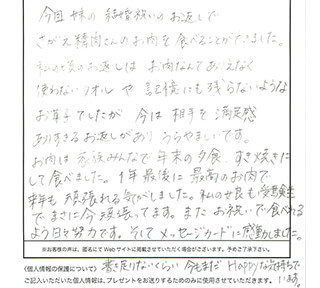 今回 妹の 結婚祝いの お返しで
さがえ精肉さんのお肉を食べることができました。
私の時のお返しは お肉なんて ありえなく
使わない タオル や 記憶にも 残らない ような
お菓子でしたが 今は 相手を 満足感
ありすぎる お返しが あり うらやましいです。
お肉は 家族みんなで 年末の夕食 すき焼きに
して 食べました。1年最後に 最高のお肉で
来年も 頑張れる 気がしました。私の 長も 受験生
で まさに今 頑張ってます。また お祝いで 食べれる
よう日々努力です。そして メッセージカードに感動しました。
※お客様の声は、匿名にて Web サイトに掲載させていただく場合がございます。予めご了承下さい。
〈個人情報の保護について〉 書き足りないくらい 今もまだ Happyな気持ちで
います。
ご記入いただいた個人情報は、プレゼントをお送りするためのみに使用させていただきます。